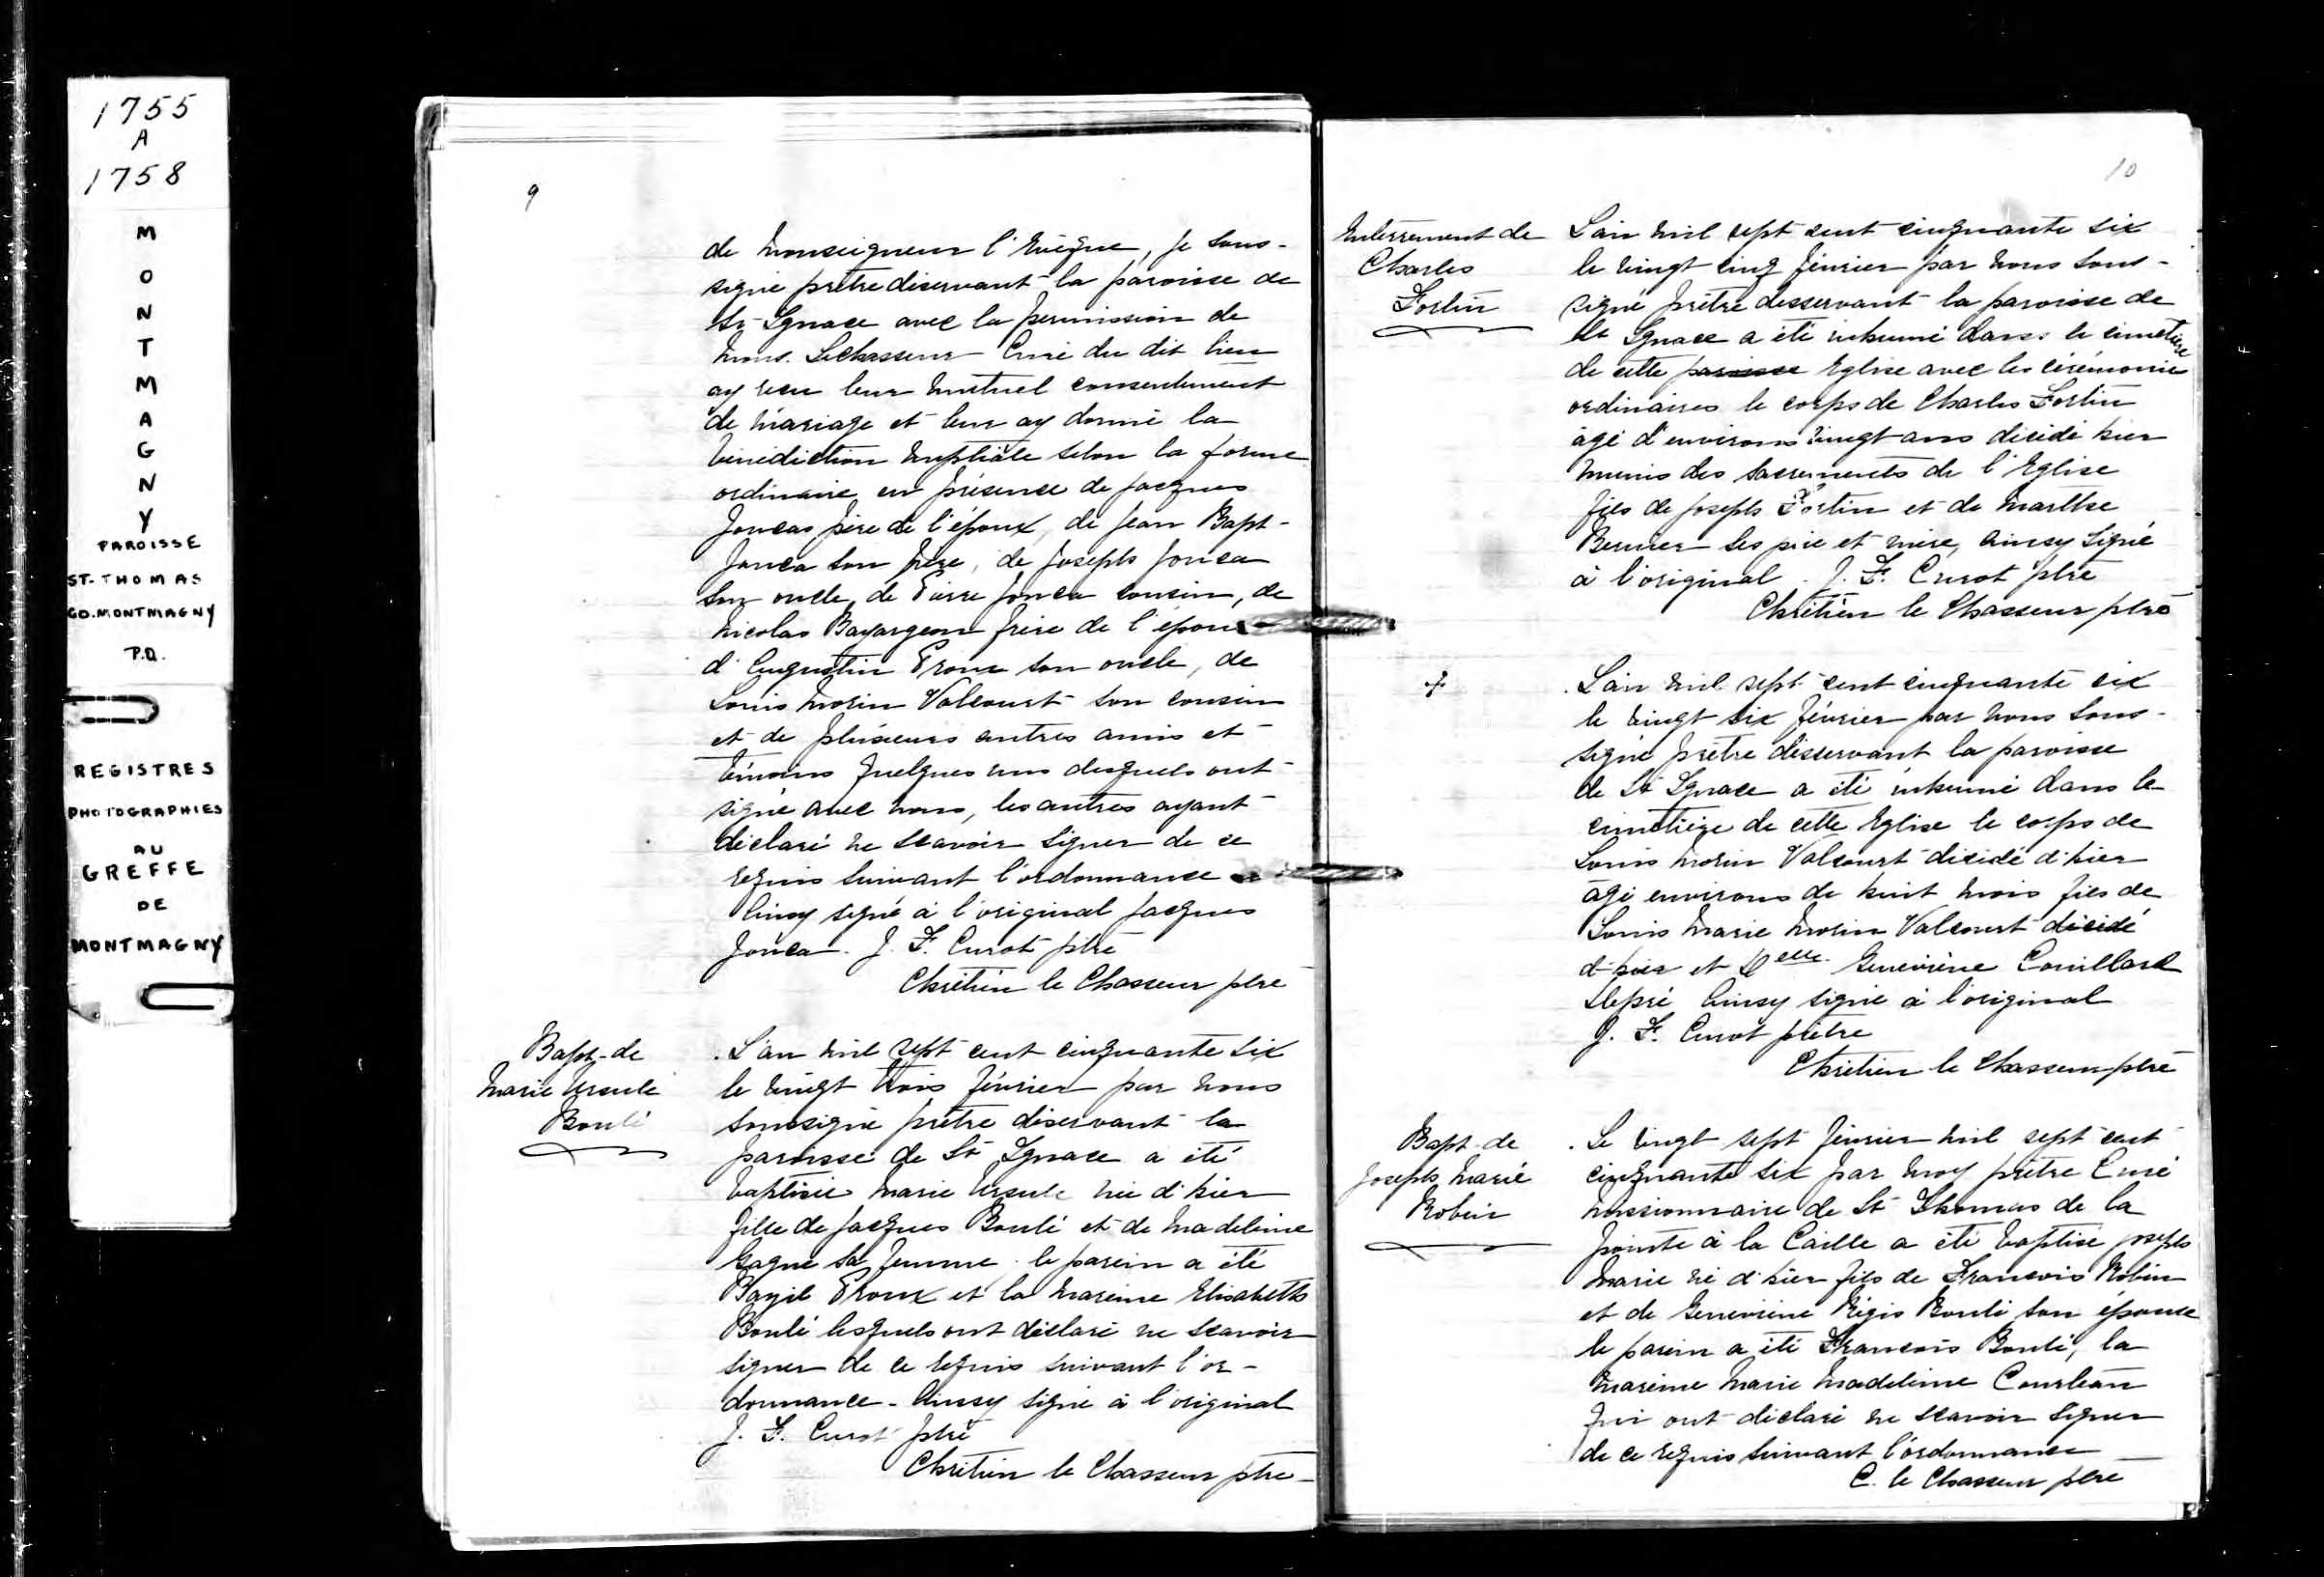 1755
A
1758
M
O
N
T
M
A
G
N
Y
PAROISSE
ST-THOMAS
CO.MONTMAGNY
P.Q.
REGISTRES
PHOTOGRAPHIES
AU
GREFFE
DE
MONTMAGNY
9
de Monseigneur l'Evêque, je sous-
signé prêtre déservant la paroisse de
St-Ignace avec la permission de
Mons. Lechasseur Curé du dit lieu
ay recu leur mutuel consentement
de mariage et leur ay donné la
bénédiction nuptiale selon la forme
ordinaire en présence de jacques
Joncas père de l'époux, de Jean Bapt-
Jonca son frère, de joseph jonca
son oncle, de Pierre jonca cousin, de
Nicolas Bayargeon frère de l'épouse
d'Augustin Proux son oncle, de
Louis Morin Valcourt son cousin
et de plusieurs autres amis et
témoins quelques uns desquels ont
signé avec nous, les autres ayant
déclaré ne scavoir signer de ce
requis suivant l'ordonnance
Ainsy signé à l'original jacques
Jonca. J. F. Curot ptre
Chrétien le Chasseur ptre
Bapt-de
Marie Ursule
Boulé
L'an mil sept cent cinquante six
le vingt trois février par nous
soussigné prêtre déservant la
paroisse de St Ignace a été
baptisée Marie Ursule née d'hier
fille de jacques Boulé et de Madeleine
Gagné sa femme le parein a été
Bazil Proux et la mareine Elisabeth
Boulé lesquels ont déclaré ne scavoir
signer de ce requis suivant l'or-
donnance - Ainssy signé à l'original
J. F. Curot ptre
Chrétien le Chasseur ptre
10
Enterrement de
Charles
Fortin
L'an mil sept cent cinquante six
le vingt cinq février par nous sous-
signé prêtre desservant la paroisse de
St Ignace a été inhumé dans le cimetière
de cette paroisse Eglise avec les cérémonie
ordinaires le corps de Charles Fortin
âgé d'environs vingt ans décédé hier
munis des sacrements de l'Eglise
fils de joseph Fortin et de Marthe
Bernier ses père et mère, Ainsy signé
à l'original. J. F. Curot ptre
Chrétien le Chasseur ptre
L'an mil sept cent cinquante six
le vingt six février par nous sous-
signé prêtre desservant la paroisse
de St Ignace a été inhumé dans le
cimetière de cette Eglise le corps de
Louis Morin Valcourt décédé d'hier
âgé environs de huit mois fils de
Louis Marie Morin Valcourt décédé
d'hier et Delle Geneviève Couillard
Ainsy signé à l'original
J. F. Curot prêtre
Chrétien le Chasseur ptre
Bapt de
Joseph Marie
Robin
Le vingt sept février mil sept cent
cinquante six par moy prêtre Curé
missionnaire de St Thomas de la
pointe à la Caille a été baptisé joseph
Marie né d'hier fils de Francois Robin
et de Geneviève Régis Boulé son épouse
le parein a été Francois Boulé, la
mareine Marie Madeleine
qui ont déclaré ne scavoir signer
de ce requis suivant l'ordonnance
C. le Chasseur ptre